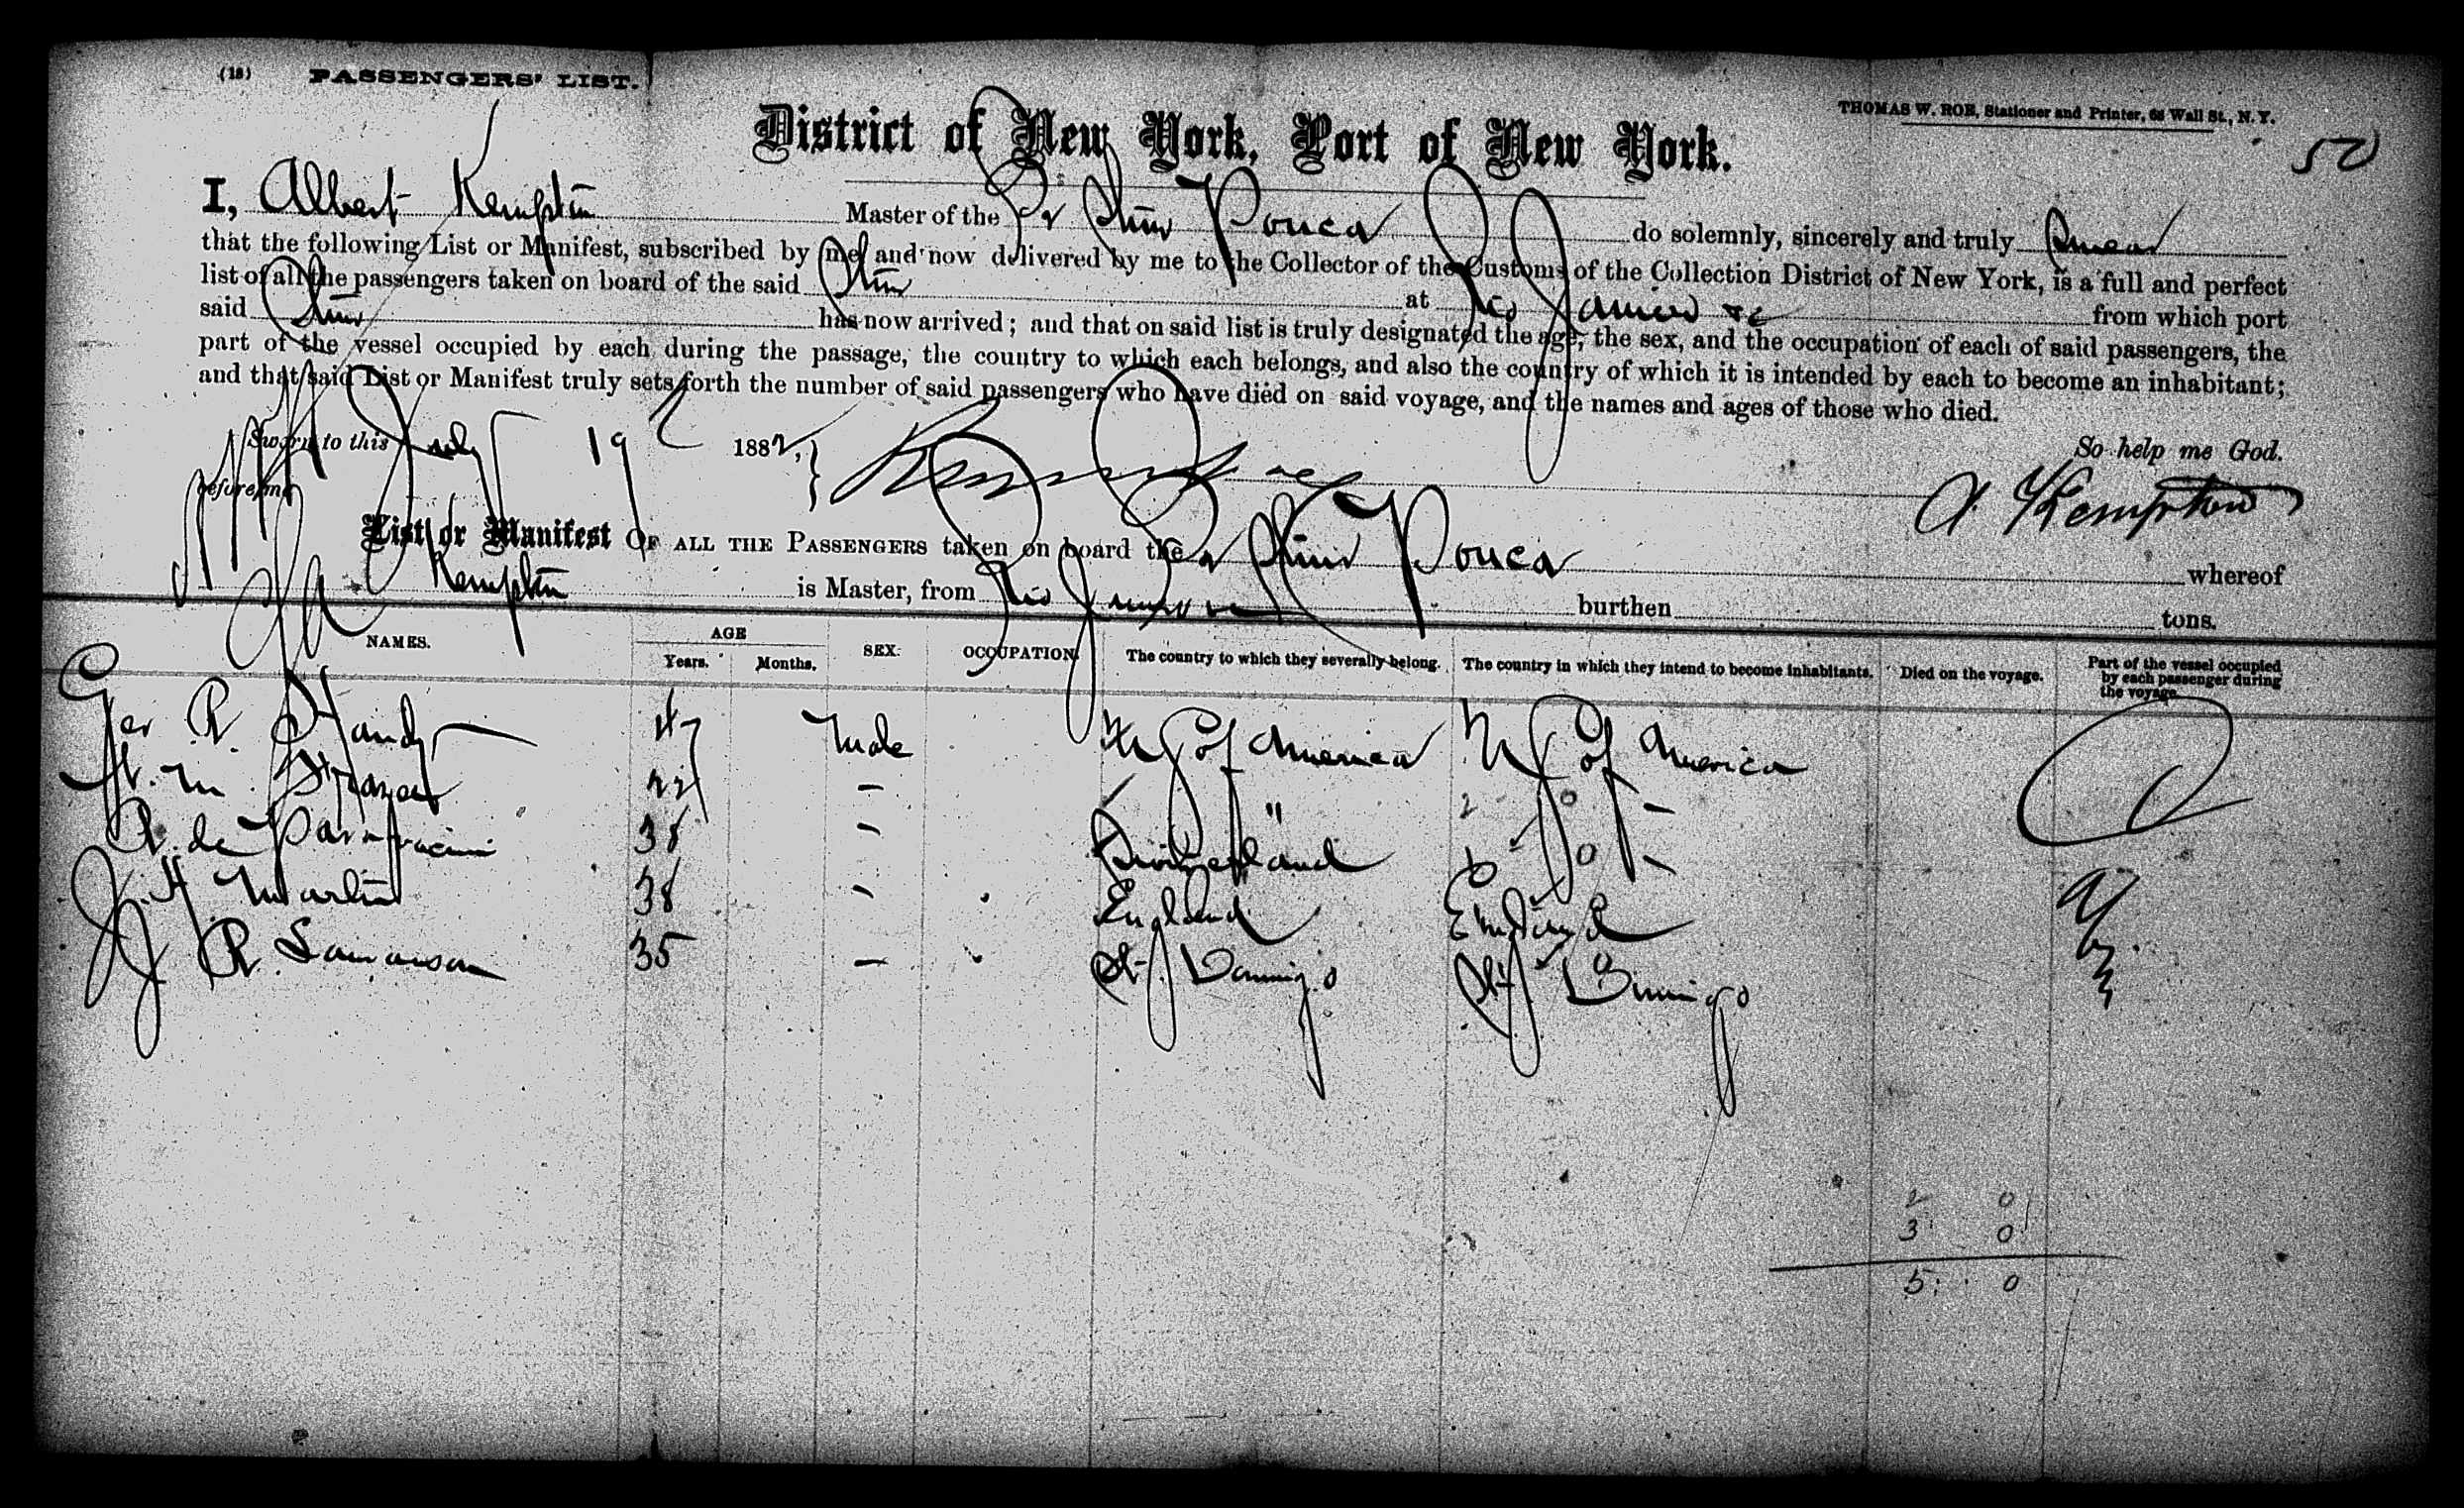 (18) PASSENGERS' LIST.
THOMAS W. ROE, Stationer and Printer, 68 Wall St., N. Y.
50
District of New York, Port of New York.
I, Albert Kempton Master of the Str Ponca do solemnly, sincerely and truly Swear
that the following List or Manifest, subscribed by me, and now delivered by me to the Collector of the Customs of the Collection District of New York, is a full and perfect
list of all the passengers taken on board of the said Str at Rio Janeiro &c from which port
said Str has now arrived; and that on said list is truly designated the age, the sex, and the occupation of each of said passengers, the
part of the vessel occupied by each during the passage, the country to which each belongs, and also the country of which it is intended by each to become an inhabitant;
and that said List or Manifest truly sets forth the number of said passengers who have died on said voyage, and the names and ages of those who died.
Sworn to this July 19 1882, So help me God.
before me A. Kempton
List or Manifest OF ALL THE PASSENGERS taken on board the Ponca whereof
Kempton is Master, from Rio Janeiro burthen tons.
NAMES. AGE Years. Months. SEX. OCCUPATION. The country to which they severally belong. The country in which they intend to become inhabitants. Died on the voyage. Part of the vessel occupied by each passenger during the voyage.
Geo R. Handy 47 Male U S of America U S of America
H. M. 22 — " —
R. de 38 — Switzerland
J. H. Martin 38 — England England
J. R. 35 — St. Domingo St. Domingo
2 0
3 0
5 0